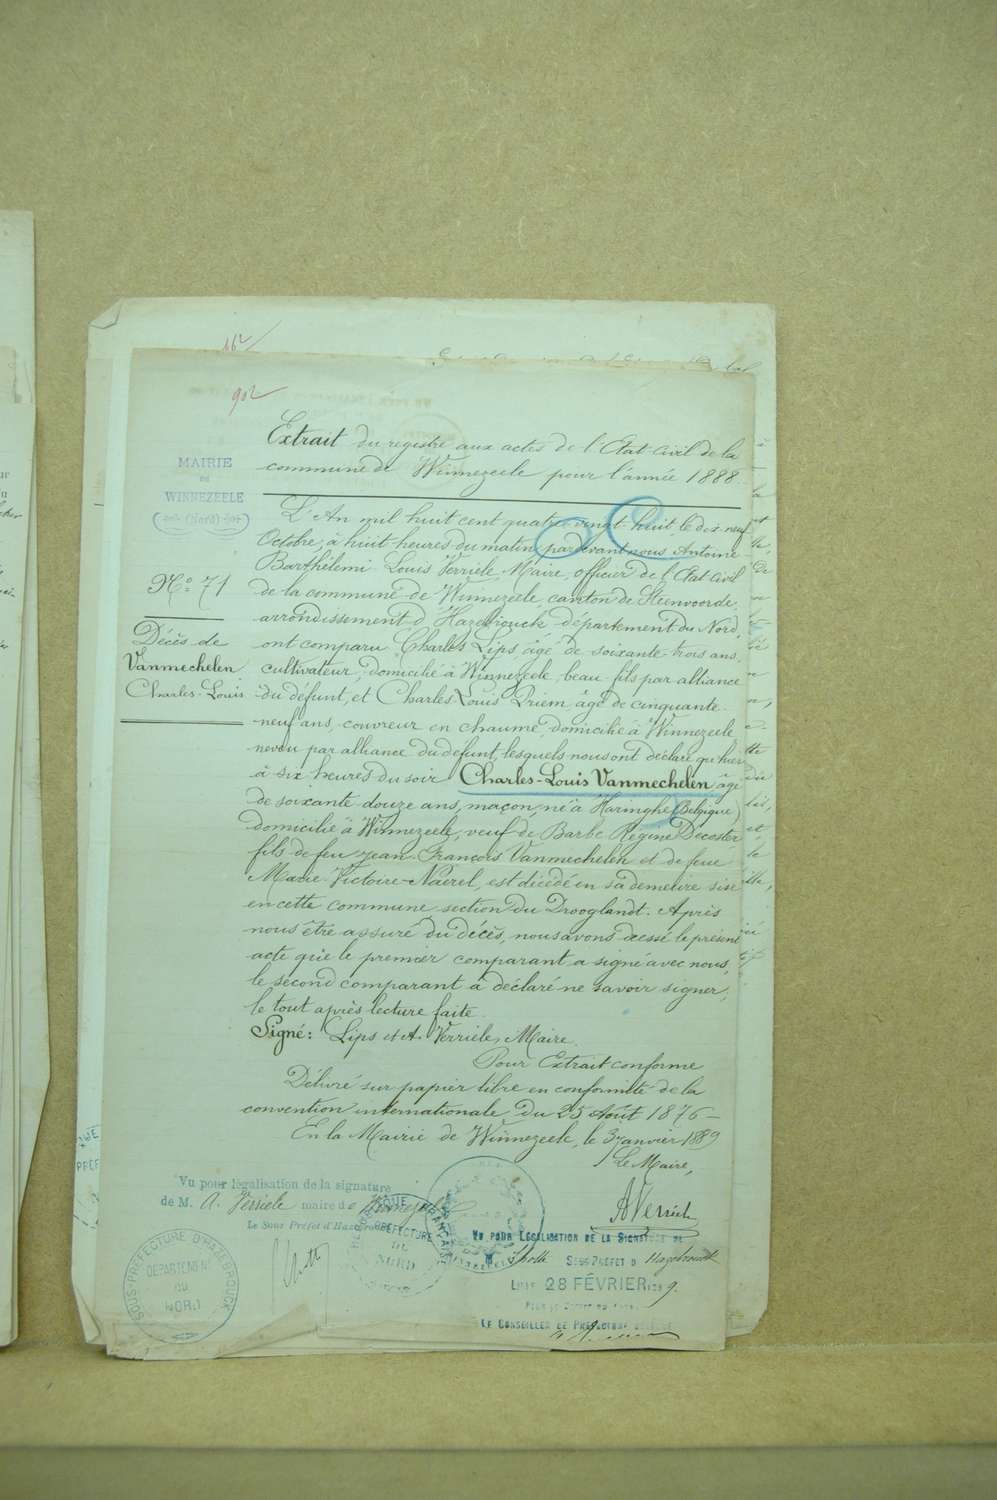 902
Extrait du registre aux actes de l'Etat-Civil de la
commune de Winnezeele pour l'année 1888.
MAIRIE
DE
WINNEZEELE
(Nord)
L'An mil huit cent quatre vingt huit, le dix neuf
Octobre, à huit heures du matin, pardevant nous Antoine
Barthélemi Louis Verriele, Maire, officier de l'Etat civil
de la commune de Winnezeele, canton de Steenvoorde,
arrondissement d'Hazebrouck département du Nord,
ont comparu Charles Lips âgé de soixante-trois ans,
cultivateur, domicilié à Winnezeele, beau-fils par alliance
du défunt, et Charles Louis Driem, âgé de cinquante-
neuf ans, couvreur en chaume, domicilié à Winnezeele
neveu par alliance du défunt, lesquels nous ont déclaré qu'hier
à six heures du soir Charles-Louis Vanmechelen, âgé
de soixante-douze ans, maçon, né à Haringhe (Belgique)
domicilié à Winnezeele, veuf de Barbe Régine Decoster
fils de feu Jean-François Vanmechelen et de feue
Marie-Victoire-Naerel, est décédé en sa demeure sise
en cette commune section du Drooglandt. Après
nous être assuré du décès, nous avons dressé le présent
acte que le premier comparant a signé avec nous,
le second comparant a déclaré ne savoir signer,
le tout après lecture faite.
Signé: Lips et A. Verriele, Maire.
No. 71
Décès de
Vanmechelen
Charles-Louis
Pour Extrait conforme
Délivré sur papier libre en conformité de la
convention internationale du 25 Août 1876 –
En la Mairie de Winnezeele, le 3 janvier 1889
Le Maire,
AVerriele
Vu pour légalisation de la signature
de M. A. Verriele maire de Winnezeele
Le Sous Préfet d'Hazebrouck
SOUS-PRÉFECTURE D'HAZEBROUCK
DÉPARTEMENT
DU
NORD
RÉPUBLIQUE FRANÇAISE
PRÉFECTURE
DU
NORD
VU POUR LÉGALISATION DE LA SIGNATURE DE
M. SOUS-PRÉFET D'Hazebrouck
LILLE 28 FÉVRIER 1889.
LE CONSEILLER DE PRÉFECTURE DÉLÉGUÉ